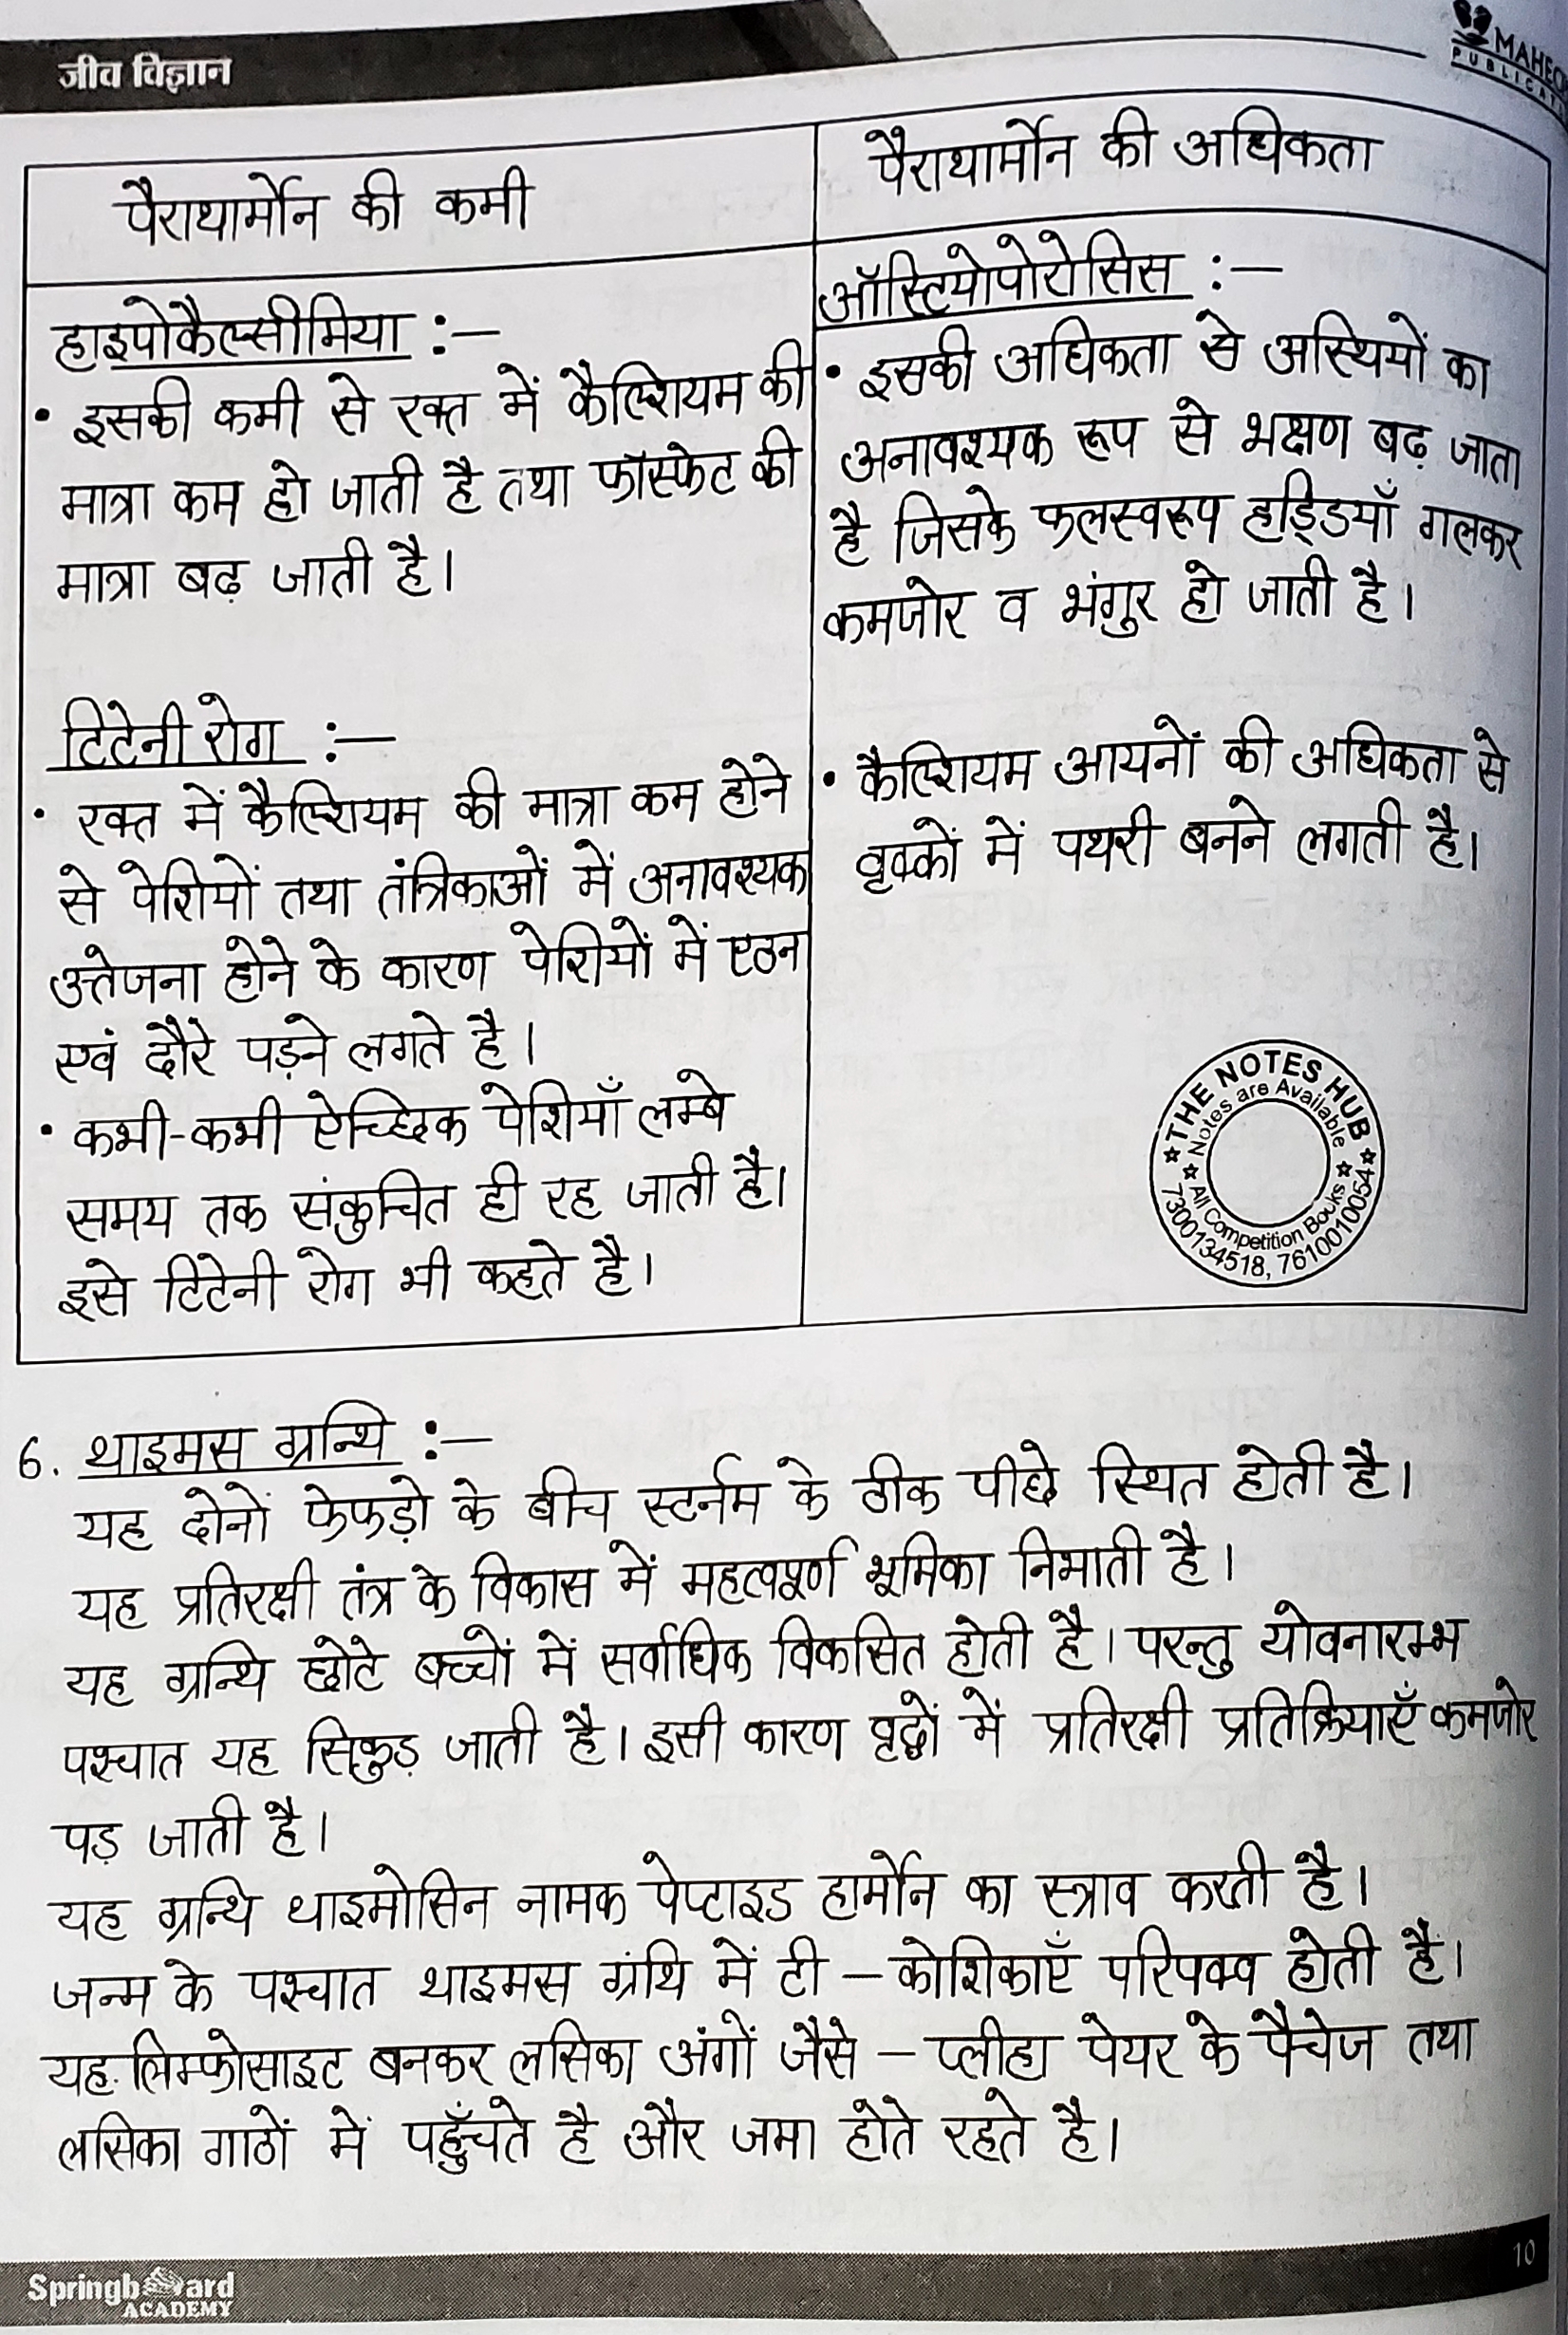 जीव विज्ञान
पैराथार्मोन की कमी
पैराथार्मोन की अधिकता
हाइपोकैल्सीमिया :—
• इसकी कमी से रक्त में कैल्शियम की
मात्रा कम हो जाती है तथा फॉस्फेट की
मात्रा बढ़ जाती है।
टिटेनी रोग :—
• रक्त में कैल्शियम की मात्रा कम होने
से पेशियों तथा तंत्रिकाओं में अनावश्यक
उत्तेजना होने के कारण पेशियों में एठन
एवं दौरे पड़ने लगते है।
• कभी-कभी ऐच्छिक पेशियाँ लम्बे
समय तक संकुचित ही रह जाती है।
इसे टिटेनी रोग भी कहते है।
ऑस्टियोपोरोसिस :—
• इसकी अधिकता से अस्थियों का
अनावश्यक रूप से भक्षण बढ़ जाता
है जिसके फलस्वरूप हड्डियाँ गलकर
कमजोर व भंगुर हो जाती है।
• कैल्शियम आयनों की अधिकता से
वृक्कों में पथरी बनने लगती है।
THE NOTES HUB
Notes are Available
All Competition Books
7300134518, 7610010054
6. थाइमस ग्रन्थि :—
यह दोनों फेफड़ो के बीच स्टर्नम के ठीक पीछे स्थित होती है।
यह प्रतिरक्षी तंत्र के विकास में महत्वपूर्ण भूमिका निभाती है।
यह ग्रन्थि छोटे बच्चों में सर्वाधिक विकसित होती है। परन्तु योवनारम्भ
पश्चात यह सिकुड़ जाती है। इसी कारण वृद्धों में प्रतिरक्षी प्रतिक्रियाएँ कमजोर
पड़ जाती है।
यह ग्रन्थि थाइमोसिन नामक पेप्टाइड हार्मोन का स्त्राव करती है।
जन्म के पश्चात थाइमस ग्रंथि में टी – कोशिकाएँ परिपक्व होती है।
यह लिम्फोसाइट बनकर लसिका अंगों जैसे – प्लीहा पेयर के पैचेज तथा
लसिका गाठों में पहुँचते है और जमा होते रहते है।
Springboard
ACADEMY
10